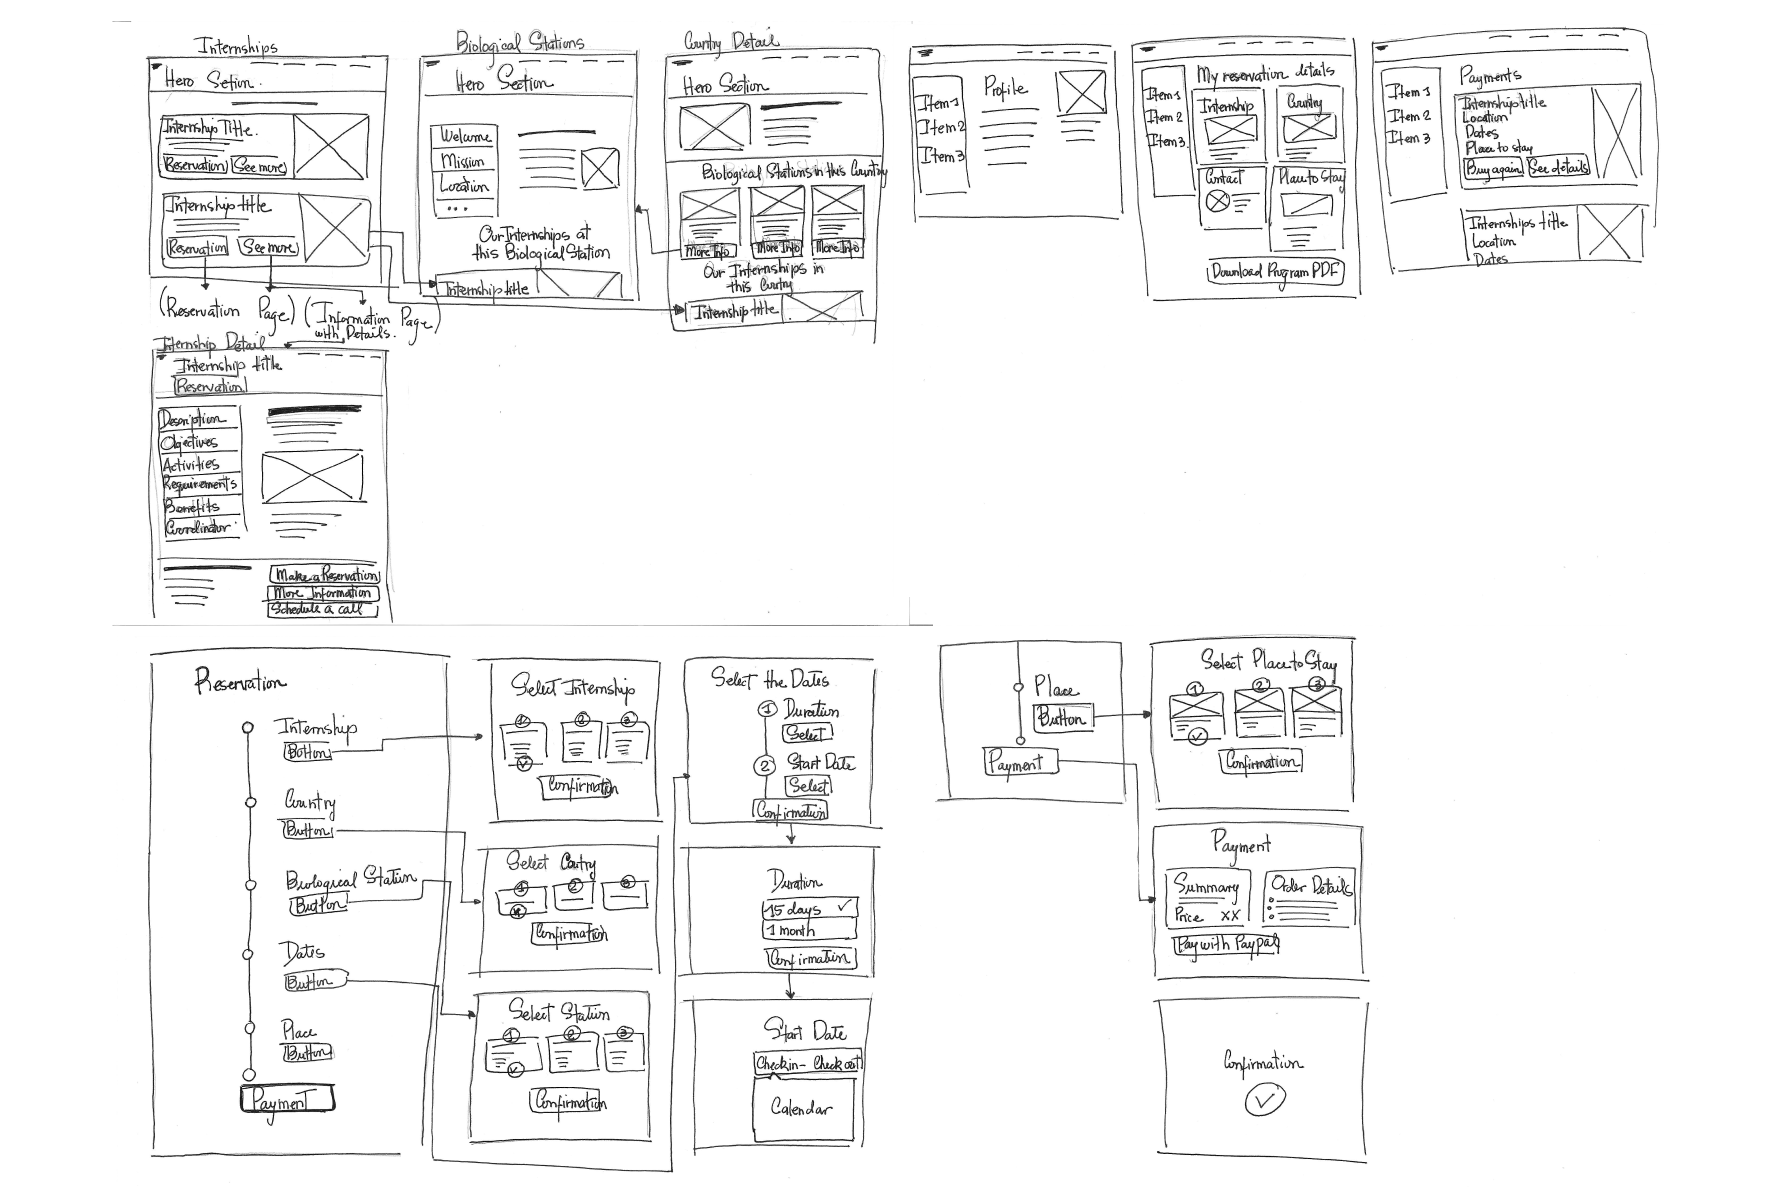 Internships
Hero Setion.
Internship Title.
Reservation
See more
Internship title
Reservation
See more
(Reservation Page)
(Information Page)
with Details.
Biological Stations
Hero Section
Welcome
Mission
Location
...
Our Internships at
this Biological Station
Internship title
Country Detail
Hero Section
Biological Stations in this Country
More Info
More Info
More Info
Our Internships in
this Country
Internship title
Item 1
Item 2
Item 3
Profile
Item 1
Item 2
Item 3
My reservation details
Internship
Country
Contact
Place to Stay
Download Program PDF
Item 1
Item 2
Item 3
Payments
Internship title
Location
Dates
Place to stay
Buy again
See details
Internships title
Location
Dates
Internship Detail
Internship title
Reservation
Description
Objectives
Activities
Requirements
Benefits
Coordinator
Make a Reservation
More Information
Schedule a call
Reservation
Internship
Button
Country
Button
Biological Station
Button
Dates
Button
Place
Button
Payment
Select Internship
1
2
3
Confirmation
Select Coutry
1
2
3
Confirmation
Select Station
1
2
3
Confirmation
Select the Dates
1 Duration
Select
2 Start Date
Select
Confirmation
Duration
15 days
1 month
Confirmation
Start Date
Checkin - Check out
Calendar
Place
Button
Payment
Select Place to Stay
1
2
3
Confirmation
Payment
Summary
Price XX
Order Details
Pay with Paypal
Confirmation